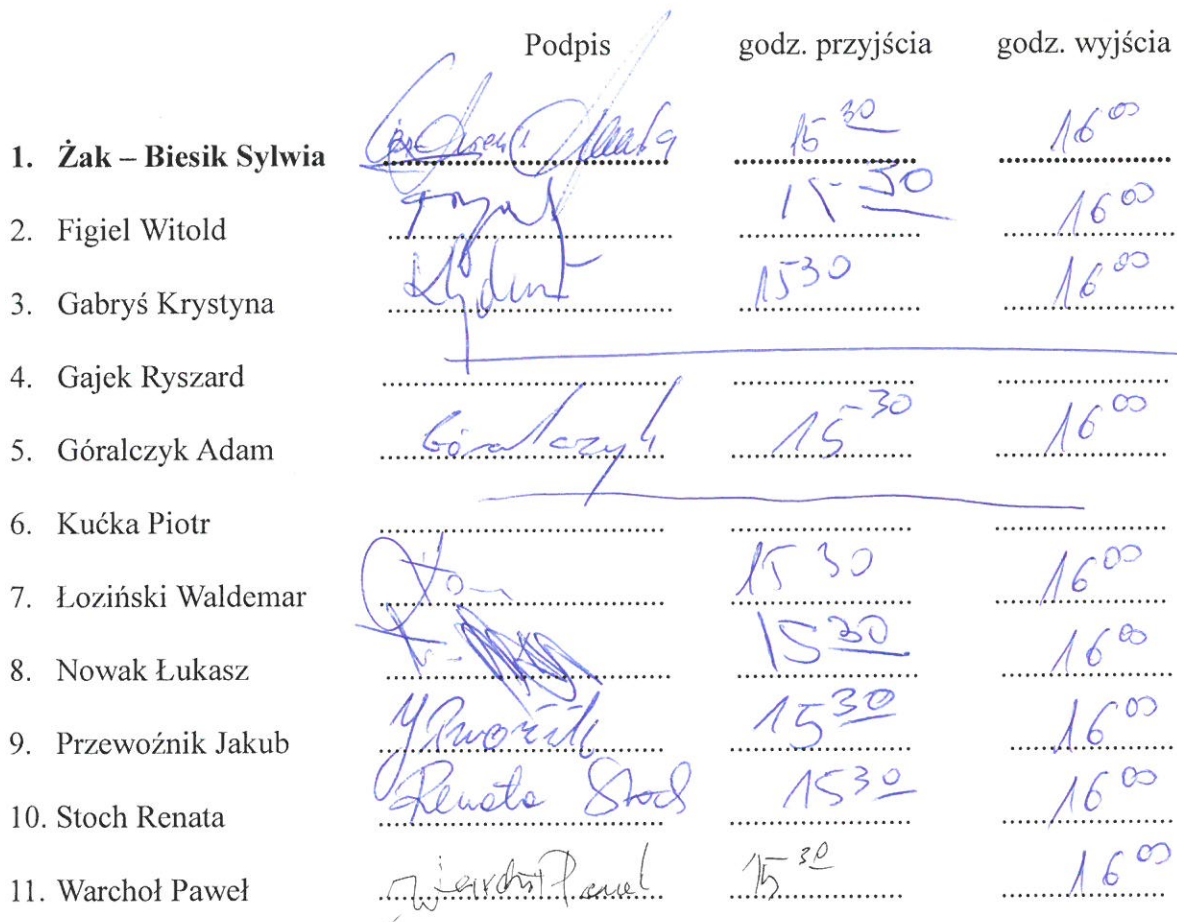 Podpis godz. przyjścia godz. wyjścia
1. Żak – Biesik Sylwia 15 30 16 00
2. Figiel Witold 15 30 16 00
3. Gabryś Krystyna 15 30 16 00
4. Gajek Ryszard
5. Góralczyk Adam Góralczyk 15 30 16 00
6. Kućka Piotr
7. Łoziński Waldemar 15 30 16 00
8. Nowak Łukasz 15 30 16 00
9. Przewoźnik Jakub 15 30 16 00
10. Stoch Renata Renata Stoch 15 30 16 00
11. Warchoł Paweł Warchoł Paweł 15 30 16 00